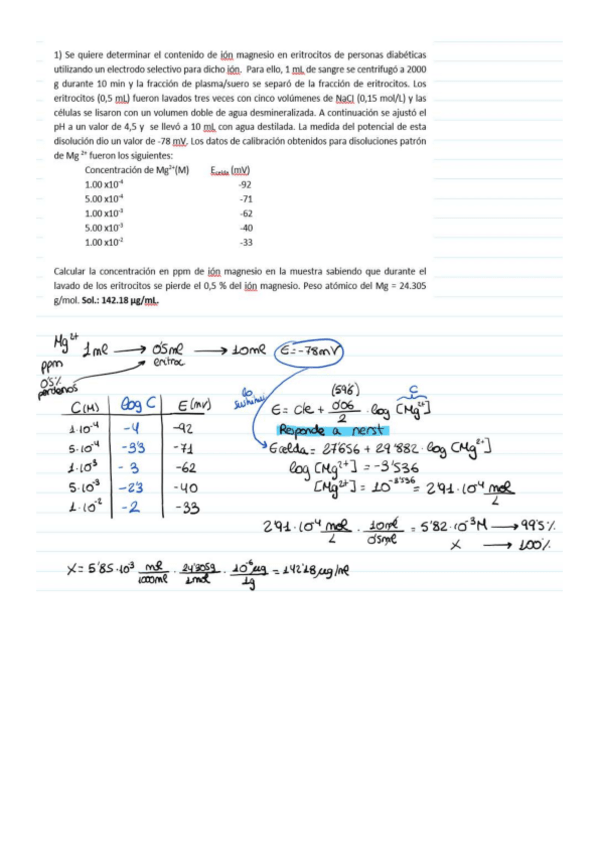 1) Se quiere determinar el contenido de ión magnesio en eritrocitos de personas diabéticas
utilizando un electrodo selectivo para dicho ión. Para ello, 1 mL de sangre se centrifugó a 2000
g durante 10 min y la fracción de plasma/suero se separó de la fracción de eritrocitos. Los
eritrocitos (0,5 mL) fueron lavados tres veces con cinco volúmenes de NaCl (0,15 mol/L) y las
células se lisaron con un volumen doble de agua desmineralizada. A continuación se ajustó el
pH a un valor de 4,5 y se llevó a 10 mL con agua destilada. La medida del potencial de esta
disolución dio un valor de -78 mV. Los datos de calibración obtenidos para disoluciones patrón
de Mg ²⁺ fueron los siguientes:
Concentración de Mg²⁺(M) E celda (mV)
1.00 x10⁻⁴ -92
5.00 x10⁻⁴ -71
1.00 x10⁻³ -62
5.00 x10⁻³ -40
1.00 x10⁻² -33
Calcular la concentración en ppm de ión magnesio en la muestra sabiendo que durante el
lavado de los eritrocitos se pierde el 0,5 % del ión magnesio. Peso atómico del Mg = 24.305
g/mol. Sol.: 142.18 µg/mL.
Mg²⁺ 1ml → 0'5ml → 10ml E=-78mV
ppm eritroc
0'5%
perdemos
lo
C(M) log C E(mV)
1·10⁻⁴ -4 -92
5·10⁻⁴ -3'3 -71
1·10⁻³ -3 -62
5·10⁻³ -2'3 -40
1·10⁻² -2 -33
(59'6) C
E= cte + 0'06/2 · log [Mg²⁺]
Responde a nerst
Ecelda = 27'656 + 29'882 · log [Mg²⁺]
log [Mg²⁺] = -3'536
[Mg²⁺] = 10⁻³'⁵³⁶ = 2'91·10⁻⁴ mol/L
2'91·10⁻⁴ mol/L · 10ml/0'5ml = 5'82·10⁻³M → 99'5%
X → 100%
X = 5'85·10⁻³ mol/1000ml · 24'305g/1mol · 10⁻⁶µg/1g = 142'18 µg/ml